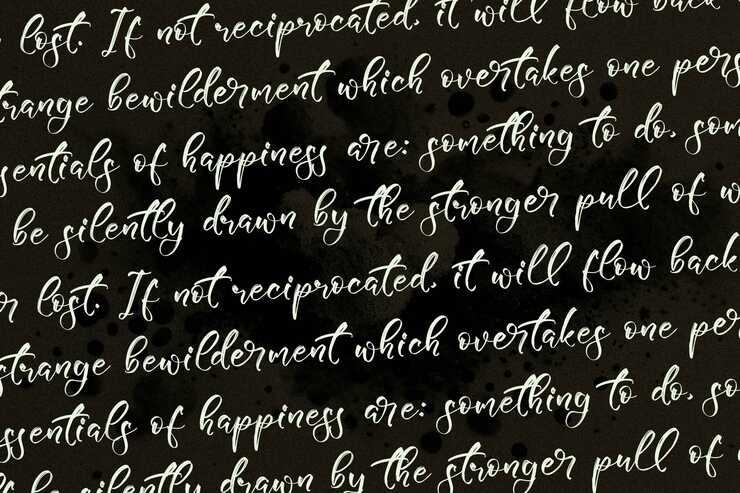 lost. If not reciprocated, it will flow back
trange bewilderment which overtakes one pers
sentials of happiness are: something to do, som
be silently drawn by the stronger pull of w
r lost. If not reciprocated, it will flow back
strange bewilderment which overtakes one per
essentials of happiness are: something to do, so
be silently drawn by the stronger pull of